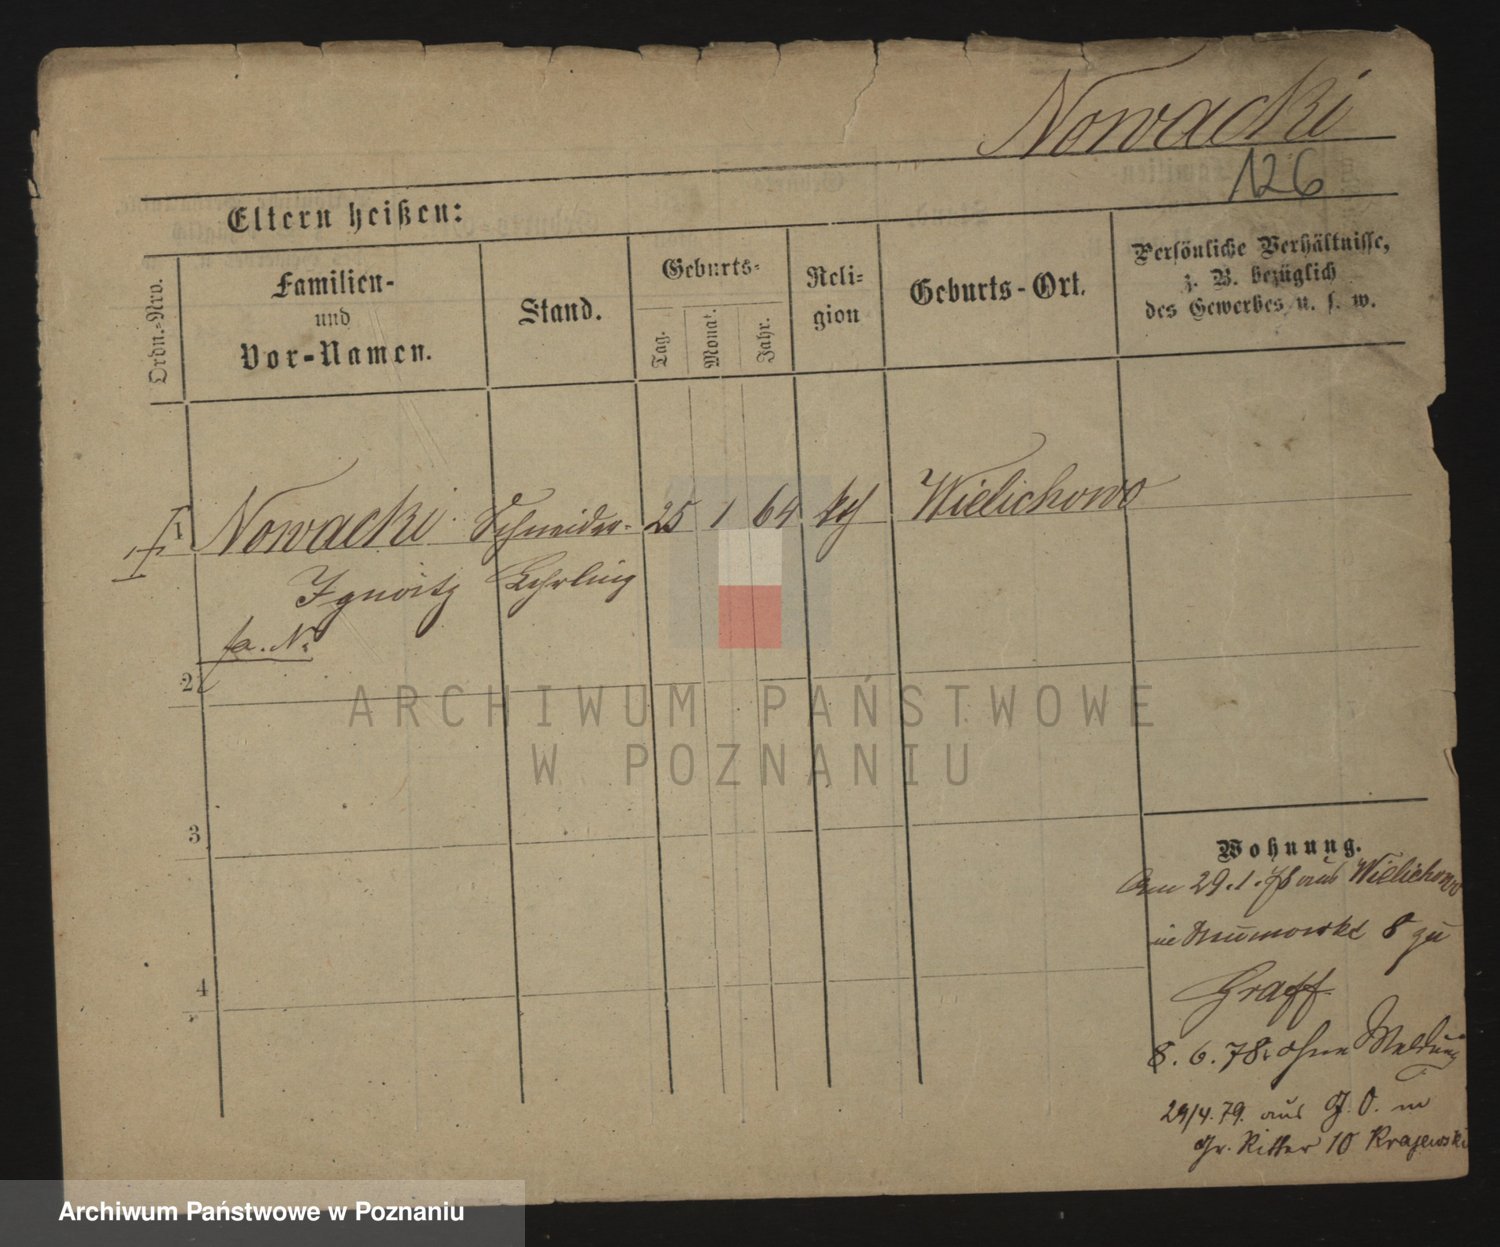 Nowacki
126
Eltern heißen:
Ordn.-Nro.
Familien-
und
Vor-Namen.
Stand.
Geburts-
Tag.
Monat.
Jahr.
Reli-
gion
Geburts-Ort.
Persönliche Verhältnisse,
z. B. bezüglich
des Gewerbes u. s. w.
1 Nowacki Schneider- 25 1 64 kth Wielichowo
Ignatz Lehrling
2
3
4
Wohnung.
Am 29.1.78 aus Wielichowo
in 8 zu
Graff
8.6.78. ohne Meldung
29/4.79. aus G. O. in
Gr. Ritter 10 Krajewski
ARCHIWUM PAŃSTWOWE
W POZNANIU
Archiwum Państwowe w Poznaniu